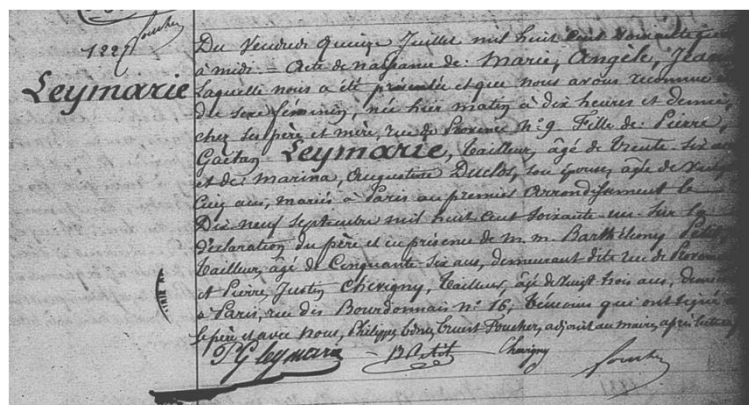 Foucher
1227
Leymarie
Du Vendredi quinze Juillet mil huit cent soixante
à midi. = Acte de naissance de: Marie, Angèle, Jeanne
Laquelle nous a été présentée et que nous avons reconnue
du sexe féminin, née hier matin à dix heures et demie,
chez ses père et mère, rue de Provence n° 9. Fille de: Pierre,
Gaëtan Leymarie, tailleur, âgé de trente six ans
et de: Marina, Augustine Duclos, son épouse, âgée de vingt
cinq ans, mariés à Paris au premier arrondissement le
Dix neuf septembre mil huit cent soixante-un. Sur la
déclaration du père et en présence de m.m. Barthélemy Petit,
tailleur, âgé de Cinquante-six ans, demeurant dite rue de Provence
et Pierre, Justin Chevigny, tailleur, âgé de vingt trois ans,
à Paris, rue des Bourdonnais n° 16, témoins qui ont signé
le père, et avec nous, Philippe, Ernest Foucher, adjoint au maire, après lecture
PG Leymarie B Petit Chevigny Foucher